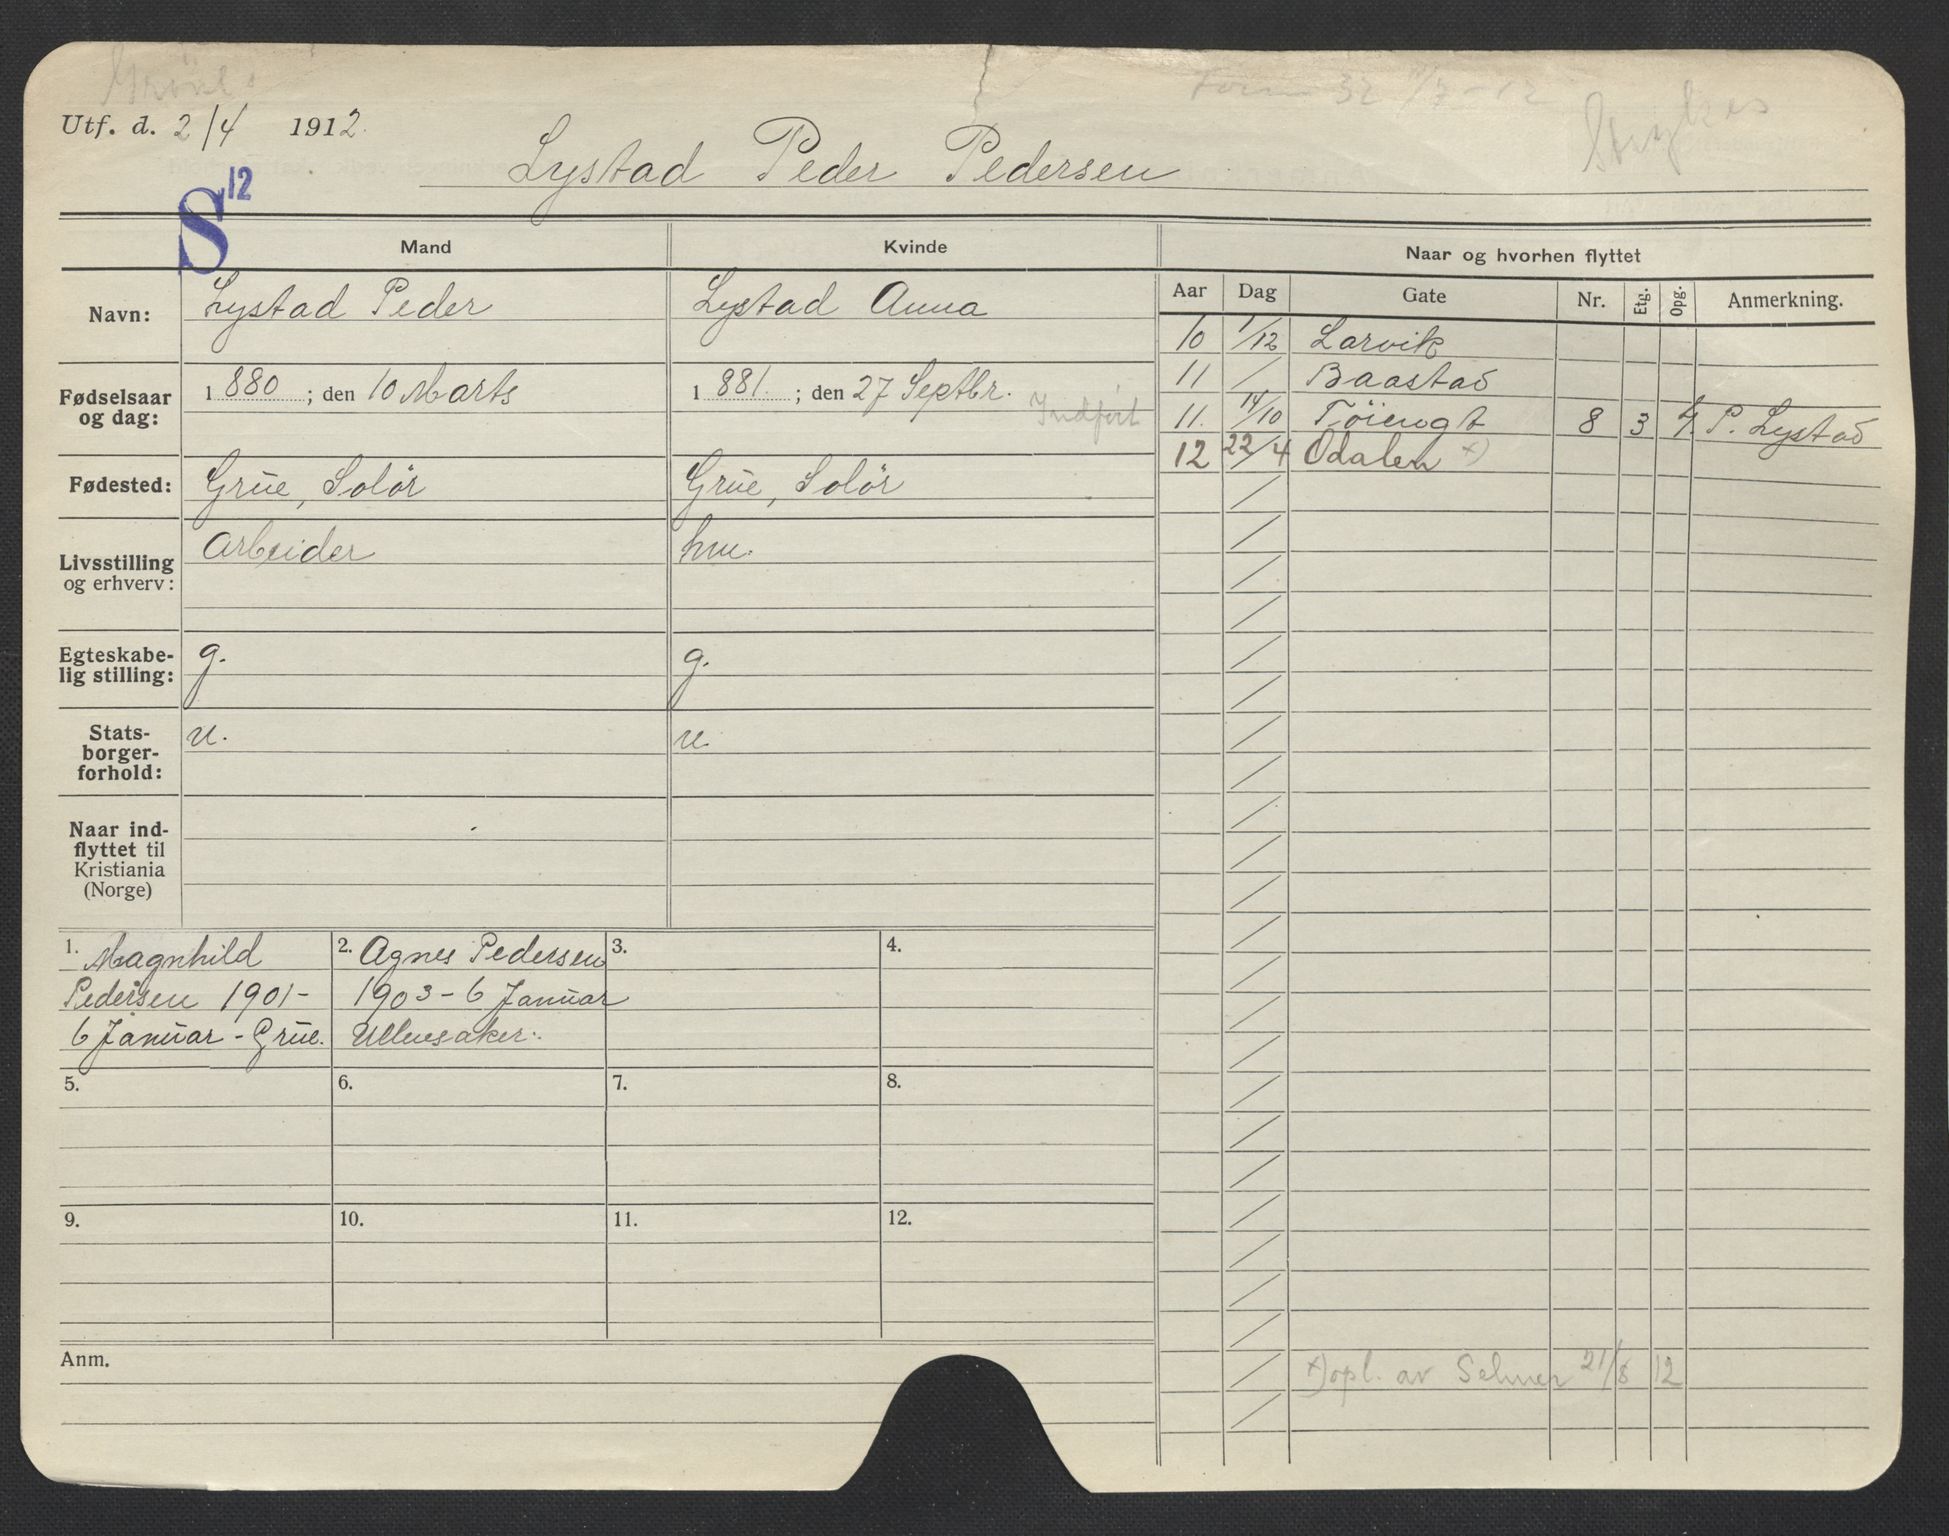 Utf. d. 2/4 1912.
Strykes
Lystad Peder Pedersen
S 12
Mand
Kvinde
Naar og hvorhen flyttet
Navn:
Lystad Peder
Lystad Anna
Fødselsaar og dag:
1880 ; den 10 Marts
1881. ; den 27 Septbr.
Indført
Fødested:
Grue, Solör
Grue, Solör
Livsstilling og erhverv:
Arbeider
hru.
Egteskabelig stilling:
g.
g.
Statsborgerforhold:
n.
n.
Naar indflyttet til Kristiania (Norge)
Aar Dag Gate Nr. Etg. Opg. Anmerkning.
10 1/12 Larvik
11 / Baastad
11. 14/10 Töiengt 8 3 4. P. Lystad
12 22/4 Odalen x)
1. Magnhild
Pedersen 1901-
6 Januar - Grue.
2. Agnes Pedersen
1903 - 6 Januar
Ullensaker.
3.
4.
5.
6.
7.
8.
9.
10.
11.
12.
Anm.
x) opl. av Selmer 21/8 12